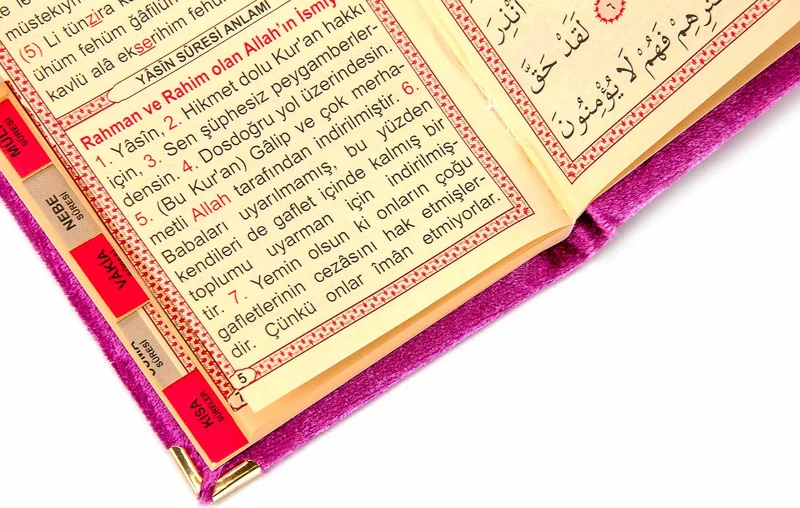 müstekıym
(5) Li tünzira
ühüm fehüm ğâfilûn
kavlü alâ ekserihim fehüm
YÂSÎN SÛRESİ ANLAMI
Rahman ve Rahim olan Allah'ın İsmiy
1. Yâsîn, 2. Hikmet dolu Kur'an hakkı
için. 3. Sen şüphesiz peygamberler-
densin. 4. Dosdoğru yol üzerindesin.
5. (Bu Kur'an) Gâlip ve çok merha-
metli Allah tarafından indirilmiştir. 6.
Babaları uyarılmamış, bu yüzden
kendileri de gaflet içinde kalmış bir
toplumu uyarman için indirilmiş-
tir. 7. Yemin olsun ki onların çoğu
gafletlerinin cezâsını hak etmişler-
dir. Çünkü onlar îmân etmiyorlar.
5
MÜL
SÛRESİ
NEBE
SÛRESİ
VÂKIA
SÛRESİ
KISA
SÛRELER
لَقَدْ حَقَّ
فَهُمْ لَا يُؤْمِنُونَ